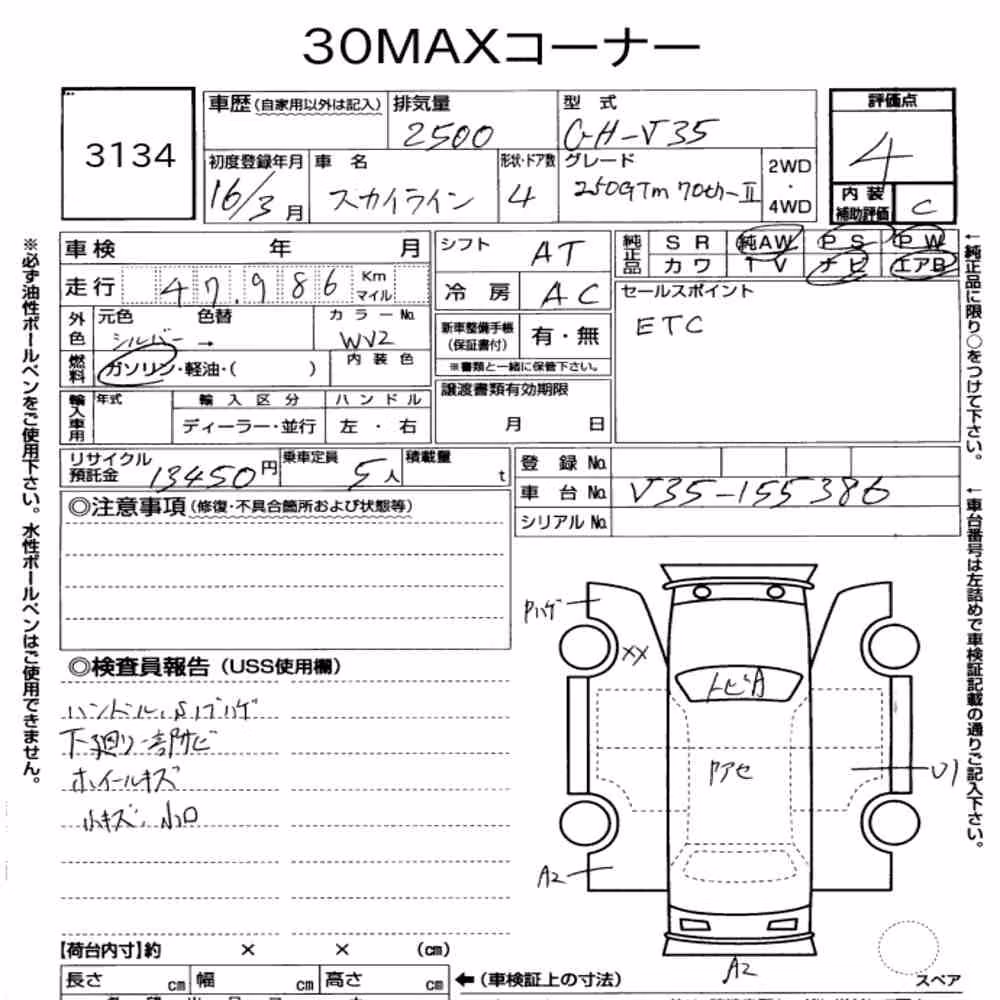 30MAXコーナー
3134
車歴(自家用以外は記入) 排気量 2500 型式 GH-V35
評価点 4
内装補助評価 C
初度登録年月 16/3月 車名 スカイライン 形状・ドア数 4 グレード 250GTm 70th-Ⅱ 2WD・4WD
※必ず油性ボールペンをご使用下さい。水性ボールペンはご使用できません。
車検 年 月
シフト AT
純正品 SR 純AW PS PW
カワ TV ナビ エアB
走行 47.986 Km マイル
冷房 AC
セールスポイント
ETC
外色 元色 シルバー → 色替 カラーNo. WV2
新車整備手帳(保証書付) 有・無
※書類と一緒に保管下さい。
燃料 ガソリン・軽油・( ) 内装色
譲渡書類有効期限
月 日
輸入車用 年式 輸入区分 ハンドル
ディーラー・並行 左・右
リサイクル預託金 13450円 乗車定員 5人 積載量 t
登録No.
車台No. V35-155386
シリアルNo.
←純正品に限り○をつけて下さい。
←車台番号は左詰めで車検証記載の通りご記入下さい。
◎注意事項(修復・不具合箇所および状態等)
◎検査員報告(USS使用欄)
ハンドル、Sノブハゲ
下廻り一部サビ
ホイールキズ
小キズ、小凹
Pハゲ
XX
トビA
PアセU1
A2
A2
スペア
【荷台内寸】約 × × (cm)
長さ cm 幅 cm 高さ cm ←(車検証上の寸法)